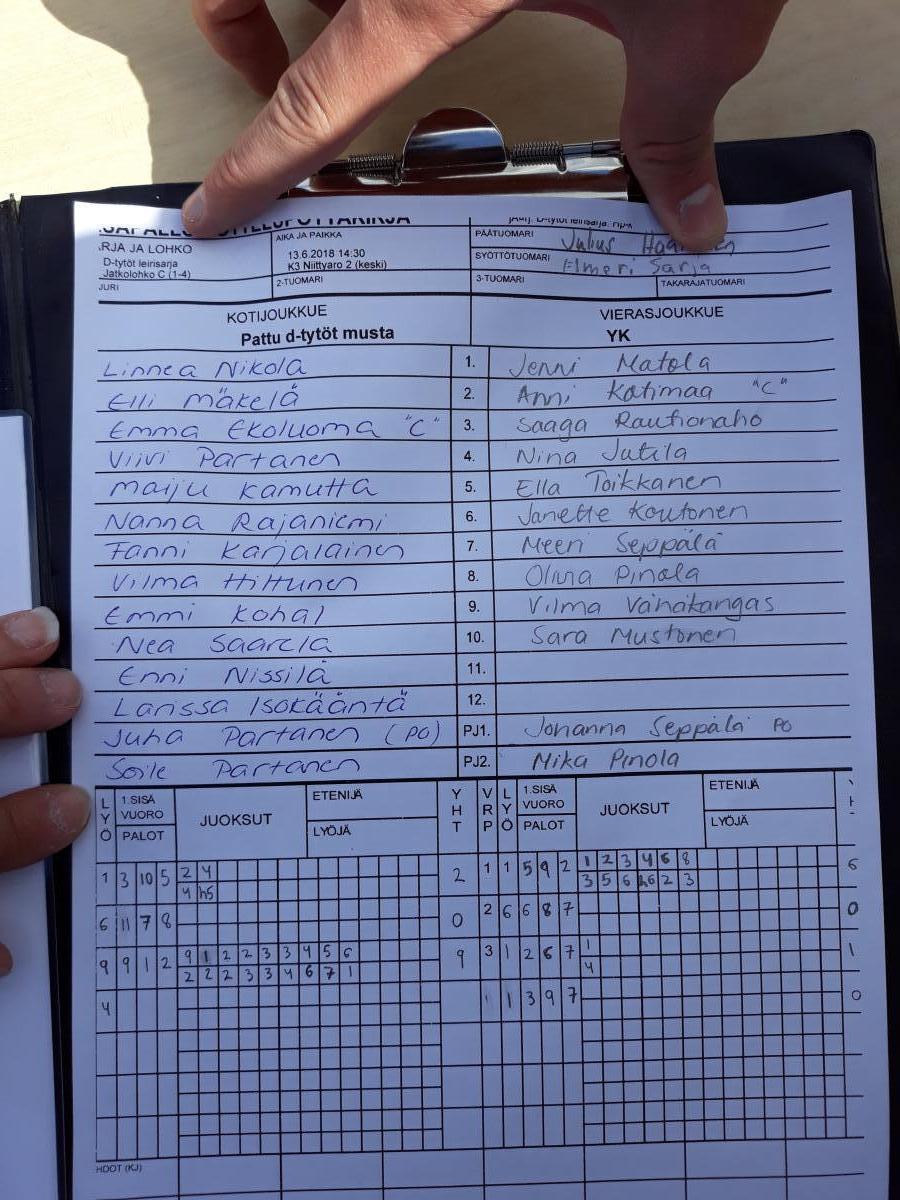 RJA JA LOHKO
D-tytöt leirisarja
Jatkolohko C (1-4)
JURI
AIKA JA PAIKKA
13.6.2018 14:30
K3 Niittyaro 2 (keski)
2-TUOMARI
PÄÄTUOMARI Julius
SYÖTTÖTUOMARI Elmeri Sarja
3-TUOMARI TAKARAJATUOMARI
KOTIJOUKKUE VIERASJOUKKUE
Pattu d-tytöt musta YK
Linnea Nikola 1. Jenni Matola
Elli Mäkelä 2. Anni Katimaa "C"
Emma Ekoluoma "C" 3. Saaga Rautionaho
Viivi Partanen 4. Nina Jutila
Maiju Kamutta 5. Ella Toikkanen
Nanna Rajaniemi 6. Janette Koutonen
Fanni Karjalainen 7. Meeri Seppälä
Vilma Hiltunen 8. Olivia Pinola
Emmi Kohal 9. Vilma Vänäkangas
Nea Saarela 10. Sara Mustonen
Enni Nissilä 11.
Larissa Isokääntä 12.
Juha Partanen (PO) PJ1. Johanna Seppälä PO
Soile Partanen PJ2. Mika Pinola
LYÖ 1.SISÄ VUORO PALOT JUOKSUT ETENIJÄ LYÖJÄ YHT VRP LYÖ 1.SISÄ VUORO PALOT JUOKSUT ETENIJÄ LYÖJÄ
1 3 10 5 2 4 2 1 1 5 9 2 1 2 3 4 6 8 6
4 h5 3 5 6 h6 2 3
6 11 7 8 0 2 6 6 8 7 0
9 9 1 2 9 1 2 2 3 3 4 5 6 9 3 1 2 6 7 1 1
2 2 2 3 3 4 6 7 1 4
4 1 1 3 9 7 0
HDOT (KJ)